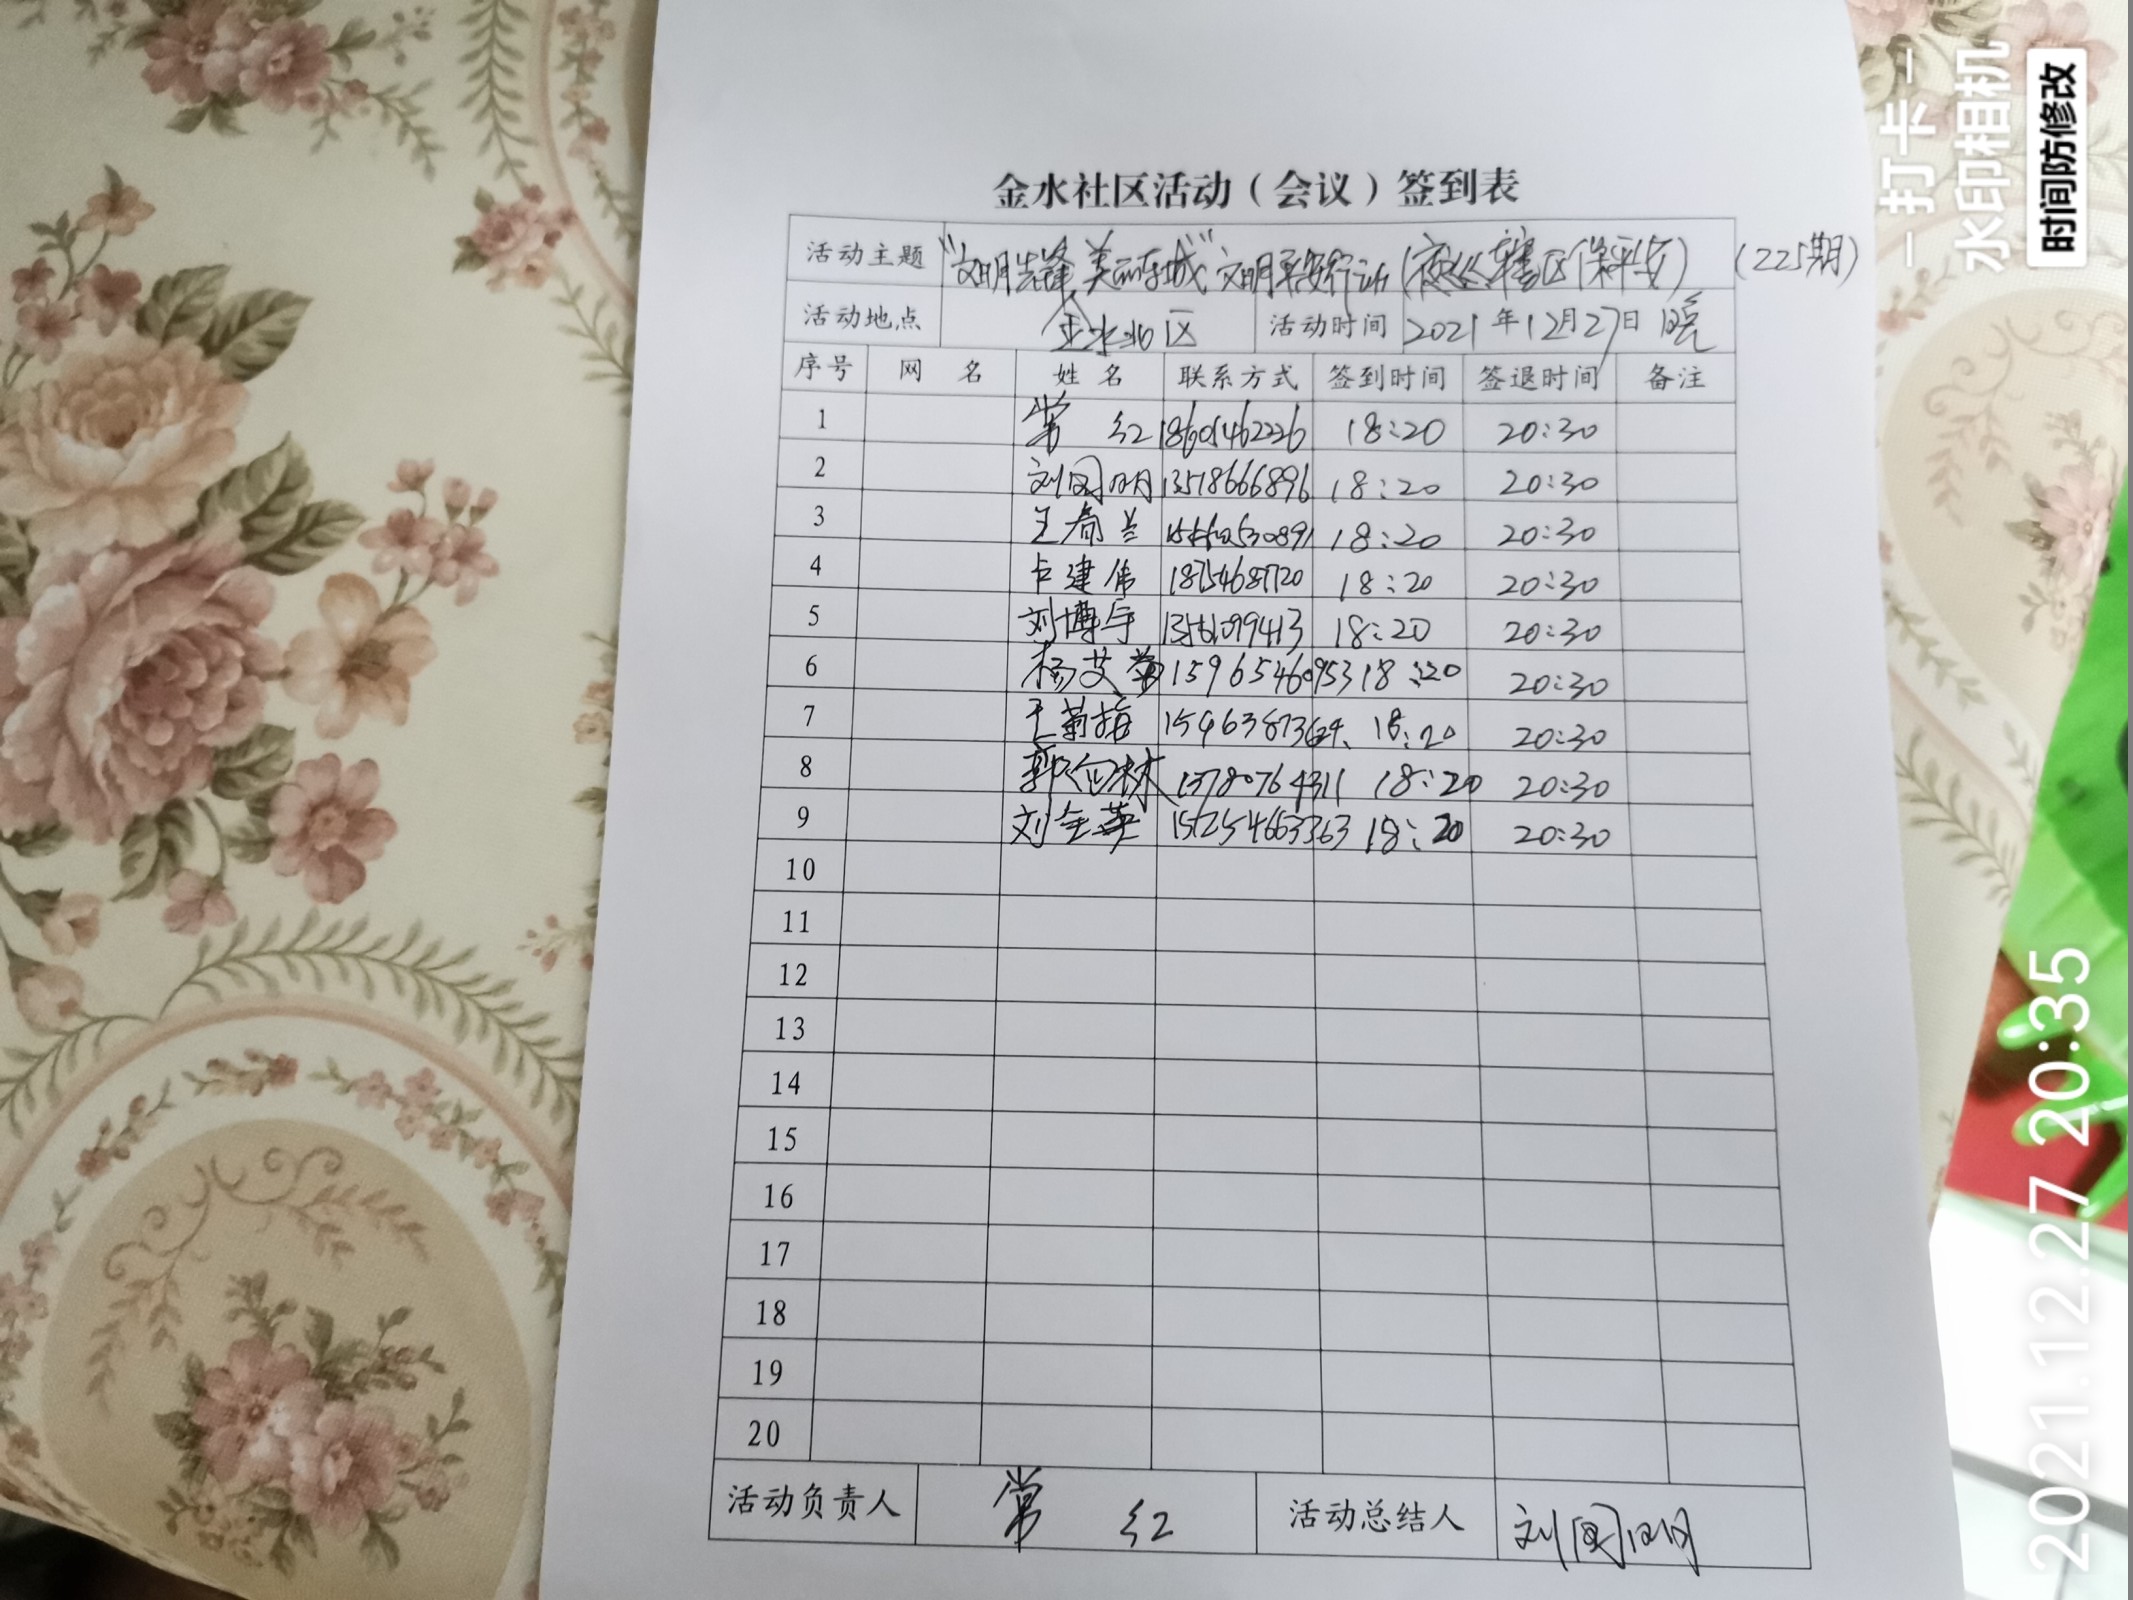 金水社区活动（会议）签到表
活动主题 “文明先锋 美丽东城”文明平安行动（夜巡辖区保平安）（225期）
活动地点 金水北区 活动时间 2021年12月27日晚
序号 网 名 姓 名 联系方式 签到时间 签退时间 备注
1 常 红 18605462226 18:20 20:30
2 刘国明 13578666896 18:20 20:30
3 王春兰 18:20 20:30
4 卞建伟 18754687720 18:20 20:30
5 刘博宇 18:20 20:30
6 杨艾菊 15965460953 18:20 20:30
7 王菊 18:20 20:30
8 郭 林 13780764311 18:20 20:30
9 刘全英 18:20 20:30
10
11
12
13
14
15
16
17
18
19
20
活动负责人 常 红 活动总结人 刘国明
打卡
水印相机
时间防修改
2021.12.27 20:35